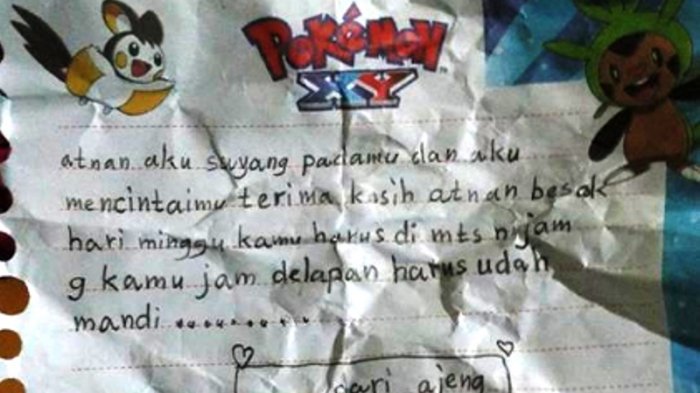 POKéMON
XY
atnan aku suyang padamu dan aku
mencintaimu terima kasih atnan besok
hari minggu kamu harus di mts njam
g kamu jam delapan harus udah
mandi ..........
dari ajeng